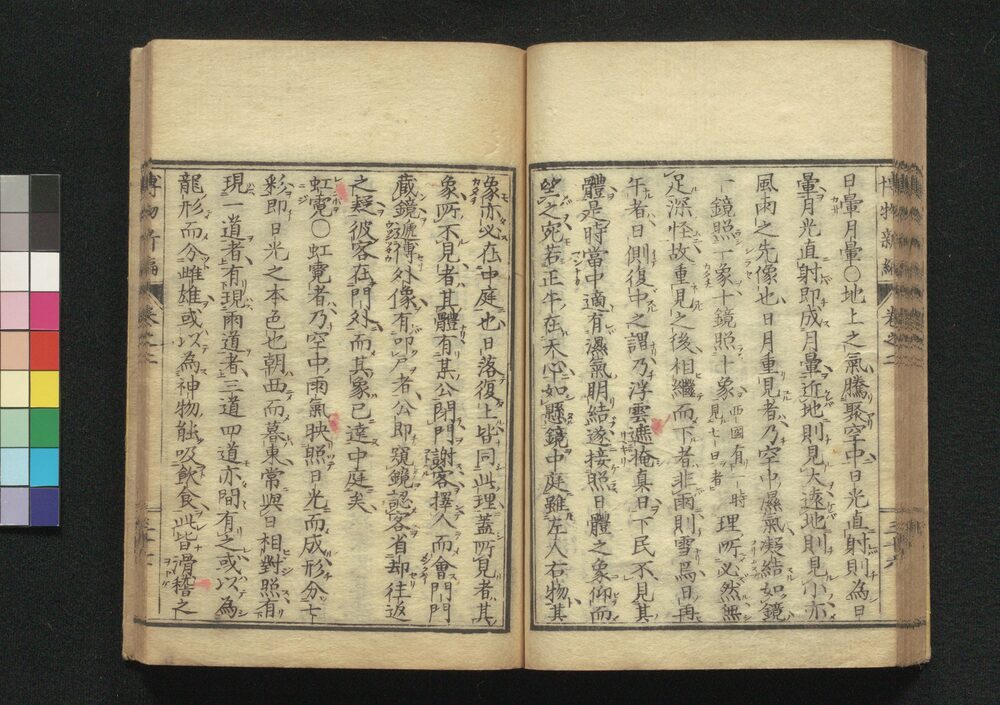 博物新編 卷之二
日暈月暈〇地上之氣騰聚空中日光直射則為日
暈月光直射即成月暈近地則見大遠地則見小亦
風雨之先像也日月重見者乃空中濕氣凝結如鏡
一鏡照一象十鏡照十象西國有一時見七日者理所必然無
足深怪故重見之後相繼而下者非雨則雪焉日再
午者日側復中之謂乃浮雲遮掩杲日下民不見其
體是時當中適有濕氣明結遂接照日體之象仰而
望之宛若正午在天心如懸鏡中庭雖左人右物其
象亦必在中庭也日落復上皆同此理蓋所見者其
象所不見者其體有某公閉門謝客擇人而會門
藏鏡遞傳外像有叩戶者公即窺鏡認客省却往返
之疑彼客在門外而其象已達中庭矣
虹霓〇虹霓者乃空中雨氣映照日光而成形分七
彩即日光之本色也朝西而暮東常與日相對照有
現一道者有現兩道者三道四道亦間有之或以為
龍形而分雌雄或以為神物能吸飲食此皆滑稽之
博物新編 卷之二